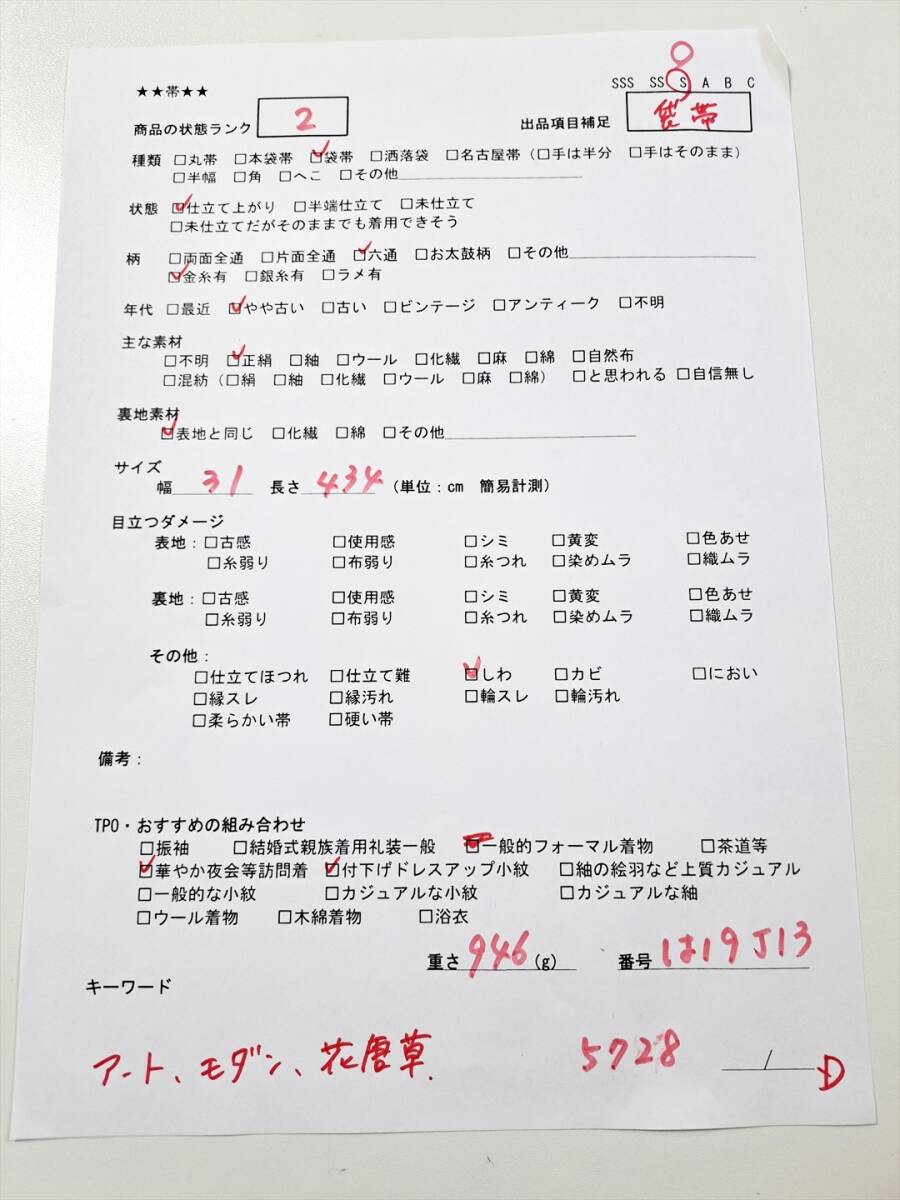 SSS SS S A B C
★★帯★★
商品の状態ランク 2 出品項目補足 袋帯
種類 □丸帯 □本袋帯 ☑袋帯 □洒落袋 □名古屋帯（□手は半分 □手はそのまま）
□半幅 □角 □へこ □その他
状態 ☑仕立て上がり □半端仕立て □未仕立て
□未仕立てだがそのままでも着用できそう
柄 □両面全通 □片面全通 ☑六通 □お太鼓柄 □その他
☑金糸有 □銀糸有 □ラメ有
年代 □最近 ☑やや古い □古い □ビンテージ □アンティーク □不明
主な素材
□不明 ☑正絹 □紬 □ウール □化繊 □麻 □綿 □自然布
□混紡（□絹 □紬 □化繊 □ウール □麻 □綿） □と思われる □自信無し
裏地素材
☑表地と同じ □化繊 □綿 □その他
サイズ
幅 31 長さ 434 （単位：cm 簡易計測）
目立つダメージ
表地：□古感 □使用感 □シミ □黄変 □色あせ
□糸弱り □布弱り □糸つれ □染めムラ □織ムラ
裏地：□古感 □使用感 □シミ □黄変 □色あせ
□糸弱り □布弱り □糸つれ □染めムラ □織ムラ
その他：
□仕立てほつれ □仕立て難 ☑しわ □カビ □におい
□縁スレ □縁汚れ □輪スレ □輪汚れ
□柔らかい帯 □硬い帯
備考：
TPO・おすすめの組み合わせ
□振袖 □結婚式親族着用礼装一般 ☑一般的フォーマル着物 □茶道等
☑華やか夜会等訪問着 ☑付下げドレスアップ小紋 □紬の絵羽など上質カジュアル
□一般的な小紋 □カジュアルな小紋 □カジュアルな紬
□ウール着物 □木綿着物 □浴衣
重さ 946 (g) 番号 1は19J13
キーワード
アート、モダン、花唐草. 5728 / D